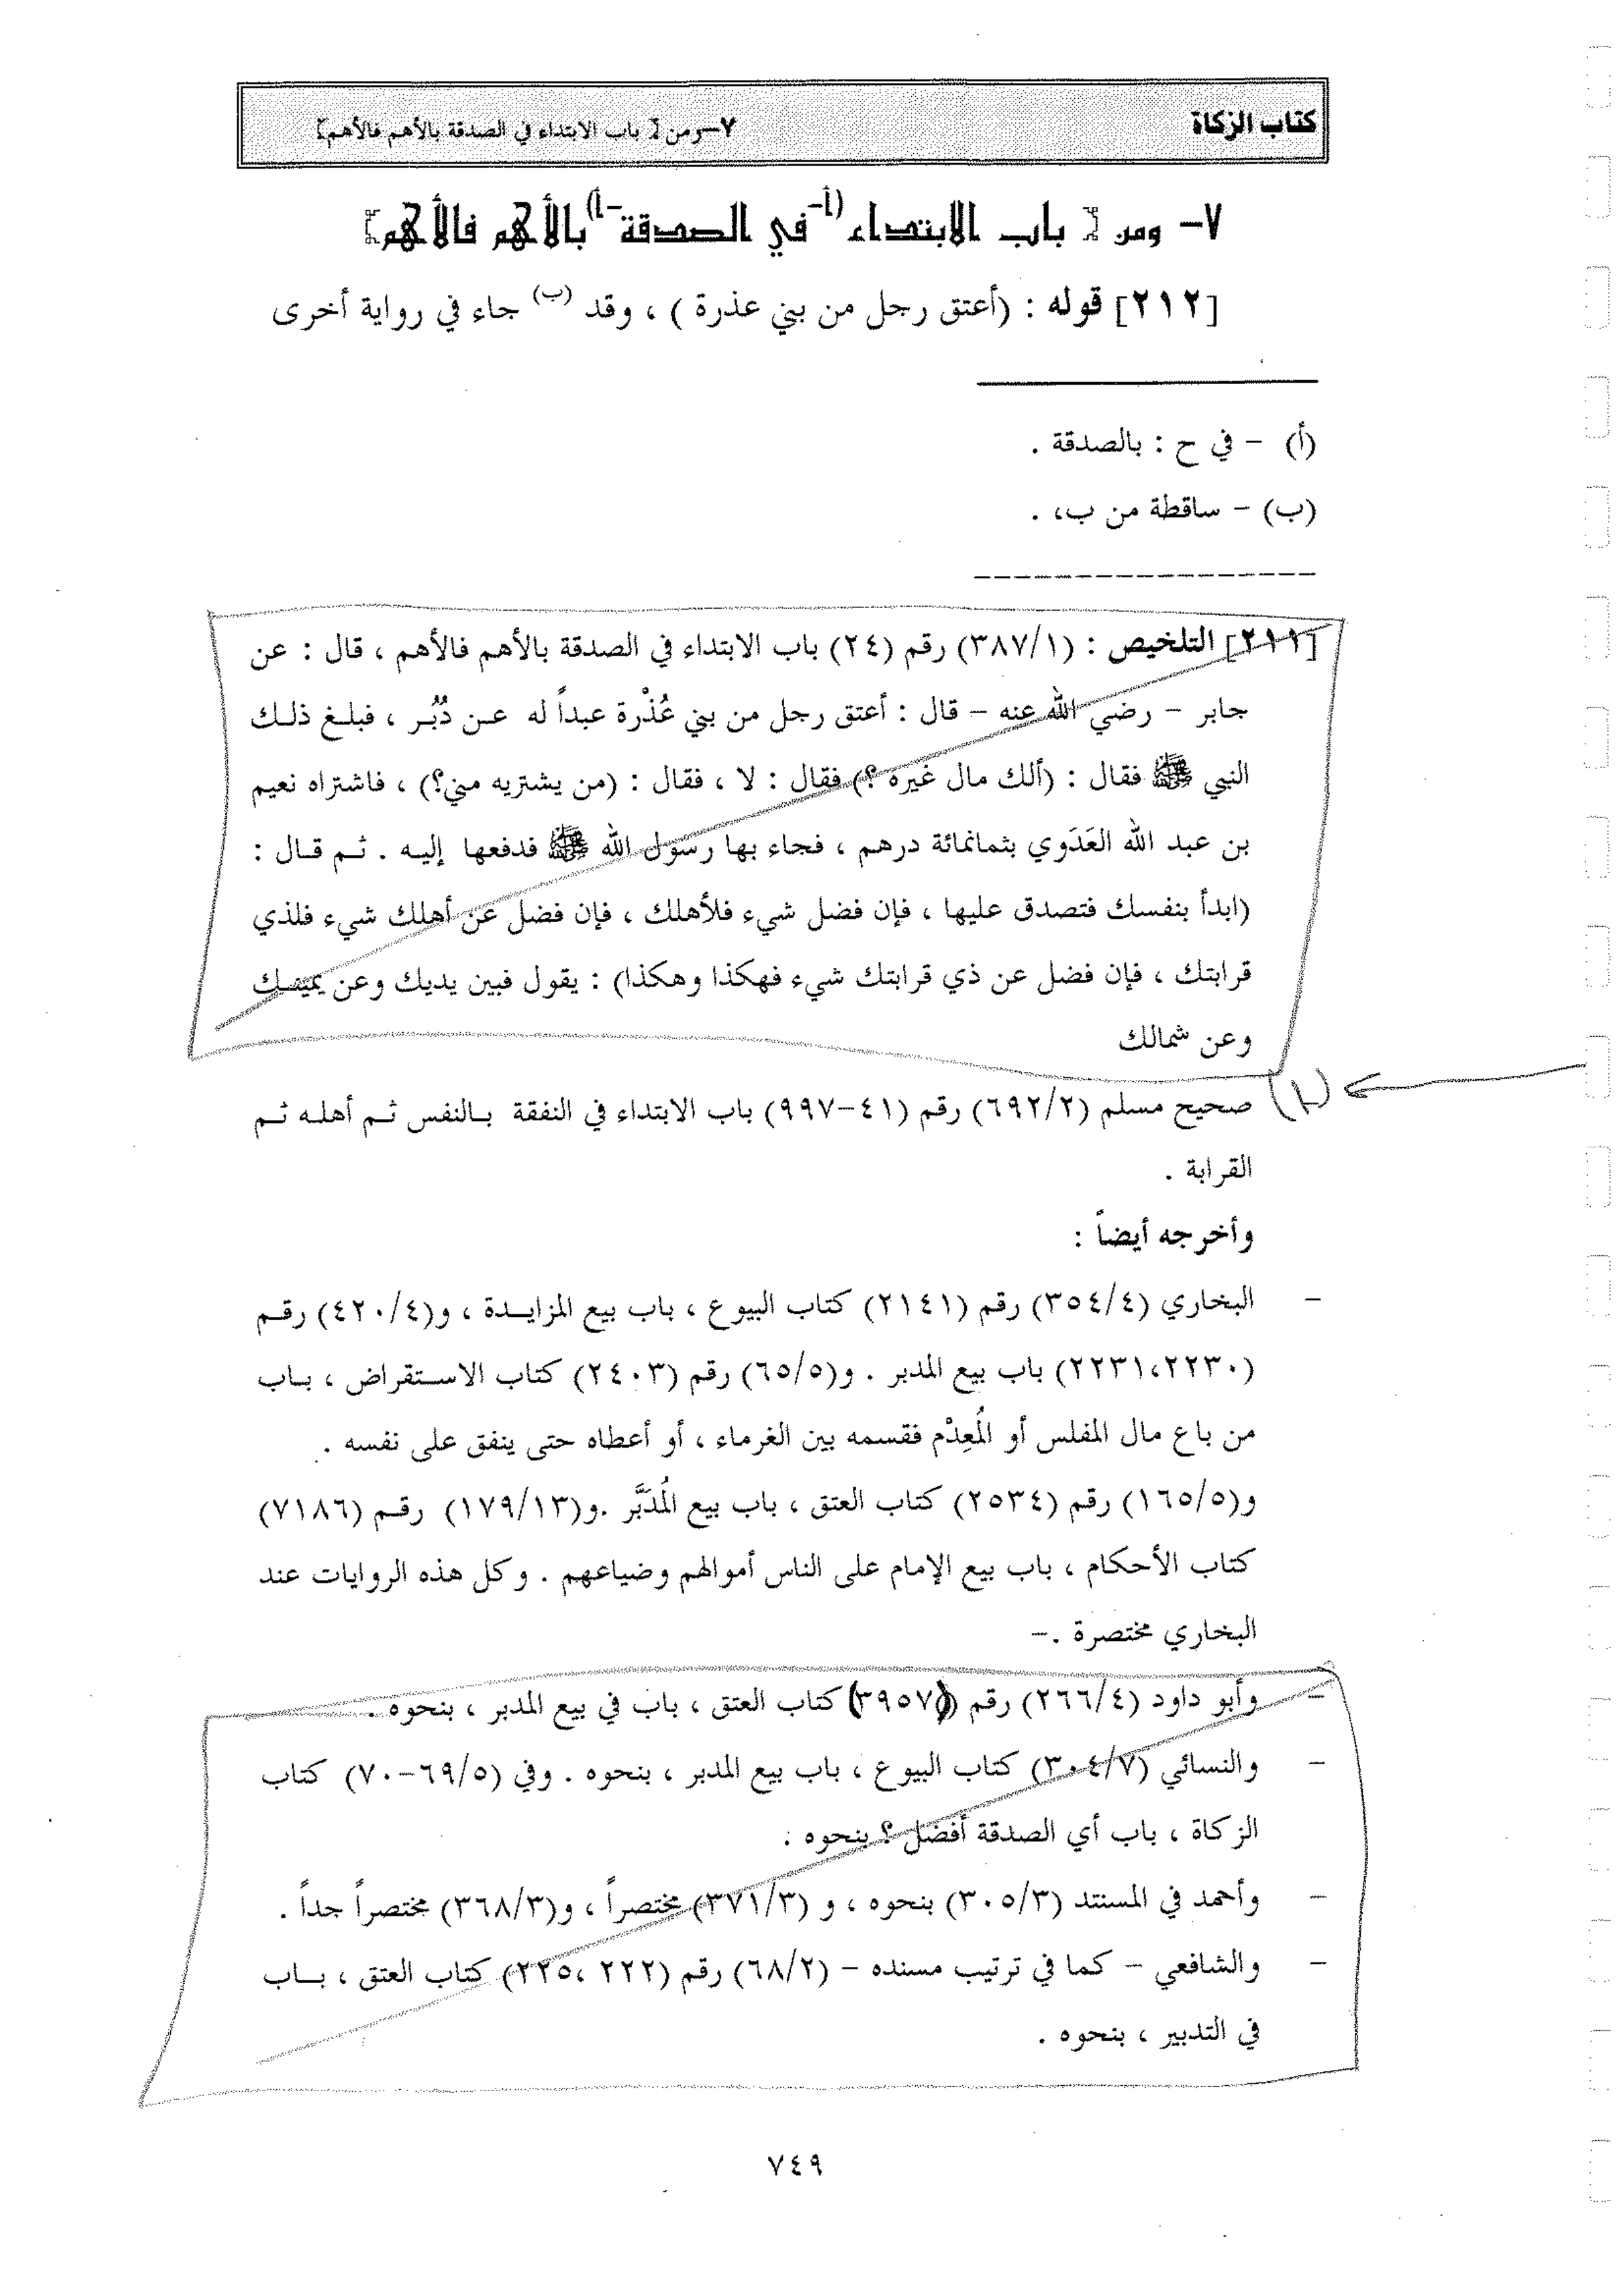 كتاب الزكاة
٧- ومن [ باب الابتداء في الصدقة بالأهم فالأهم]
٧- ومن [ باب الابتداء (أ- في الصدقة -أ) بالأهم فالأهم]
[٢١٢] قوله : (أعتق رجل من بني عذرة ) ، وقد (ب) جاء في رواية أخرى
(أ) - في ح : بالصدقة .
(ب) - ساقطة من ب، .
[٢١١] التلخيص : (٣٨٧/١) رقم (٢٤) باب الابتداء في الصدقة بالأهم فالأهم ، قال : عن
جابر - رضي الله عنه - قال : أعتق رجل من بني عُذْرة عبداً له عن دُبُر ، فبلغ ذلك
النبي ﷺ فقال : (ألك مال غيره ؟) فقال : لا ، فقال : (من يشتريه مني؟) ، فاشتراه نعيم
بن عبد الله العَدَوي بثمانمائة درهم ، فجاء بها رسول الله ﷺ فدفعها إليه . ثم قال :
(ابدأ بنفسك فتصدق عليها ، فإن فضل شيء فلأهلك ، فإن فضل عن أهلك شيء فلذي
قرابتك ، فإن فضل عن ذي قرابتك شيء فهكذا وهكذا) : يقول فبين يديك وعن يمينك
وعن شمالك
(١) صحيح مسلم (٦٩٢/٢) رقم (٤١-٩٩٧) باب الابتداء في النفقة بالنفس ثم أهله ثم
القرابة .
وأخرجه أيضاً :
- البخاري (٣٥٤/٤) رقم (٢١٤١) كتاب البيوع ، باب بيع المزايدة ، و(٤٢٠/٤) رقم
(٢٢٣١،٢٢٣٠) باب بيع المدبر . و(٦٥/٥) رقم (٢٤٠٣) كتاب الاستقراض ، باب
من باع مال المفلس أو المُعِدْم فقسمه بين الغرماء ، أو أعطاه حتى ينفق على نفسه .
و(١٦٥/٥) رقم (٢٥٣٤) كتاب العتق ، باب بيع المُدَبَّر .و(١٧٩/١٣) رقم (٧١٨٦)
كتاب الأحكام ، باب بيع الإمام على الناس أموالهم وضياعهم . وكل هذه الروايات عند
البخاري مختصرة .-
- وأبو داود (٢٦٦/٤) رقم (٣٩٥٧) كتاب العتق ، باب في بيع المدبر ، بنحوه .
- والنسائي (٣٠٤/٧) كتاب البيوع ، باب بيع المدبر ، بنحوه . وفي (٦٩/٥-٧٠) كتاب
الزكاة ، باب أي الصدقة أفضل ؟ بنحوه .
- وأحمد في المستند (٣٠٥/٣) بنحوه ، و (٣٧١/٣) مختصراً ، و(٣٦٨/٣) مختصراً جداً .
- والشافعي - كما في ترتيب مسنده - (٦٨/٢) رقم (٢٢٢ ،٢٢٥) كتاب العتق ، باب
في التدبير ، بنحوه .
٧٤٩